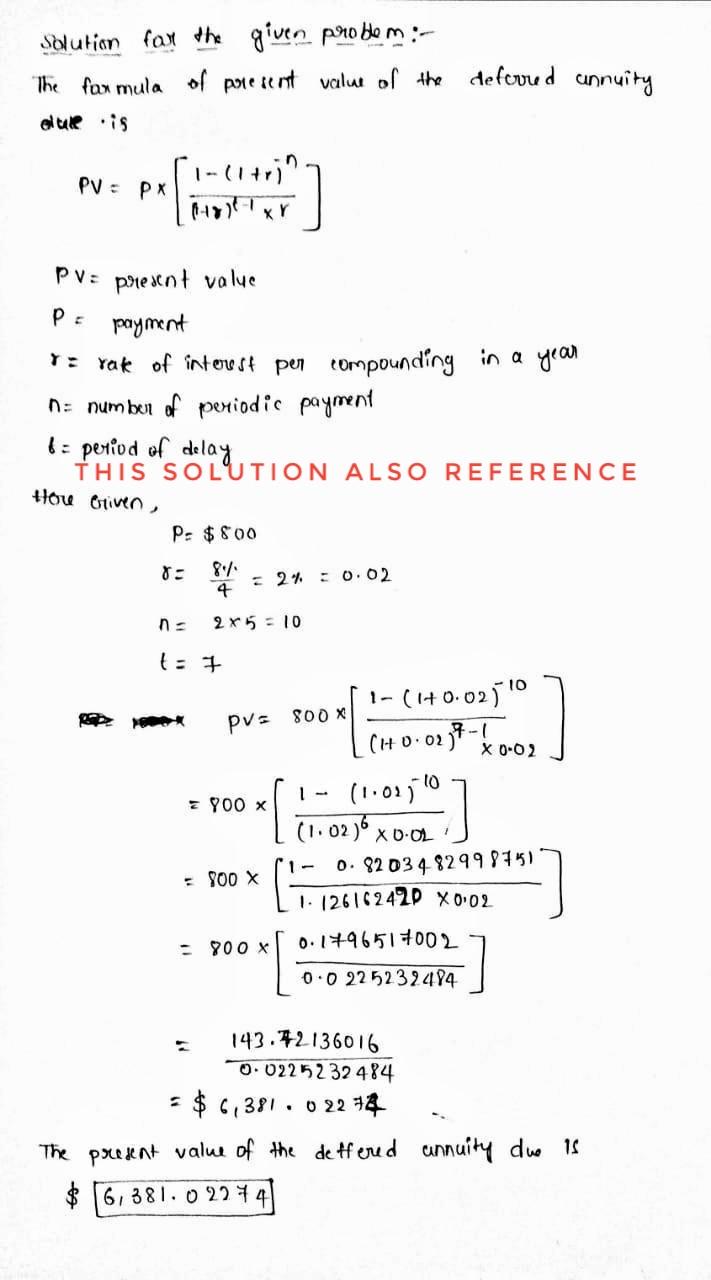 Solution for the given problem :-
The formula of present value of the deferred annuity
due is
PV = P x [ 1 - (1+r)^-n / (1+r)^t-1 x r ]
PV = present value
P = payment
r = rate of interest per compounding in a year
n = number of periodic payment
t = period of delay
THIS SOLUTION ALSO REFERENCE
Here Given,
P = $ 800
r = 8% / 4 = 2% = 0.02
n = 2x5 = 10
t = 7
PV = 800 x [ 1 - (1+0.02)^-10 / (1+0.02)^7-1 x 0.02 ]
= 800 x [ 1 - (1.02)^-10 / (1.02)^6 x 0.02 ]
= 800 x [ 1 - 0.8203482998751 / 1.126162420 x 0.02 ]
= 800 x [ 0.1796517002 / 0.0225232484 ]
= 143.72136016 / 0.0225232484
= $ 6,381.02274
The present value of the deffered annuity due is
$ 6,381.02274